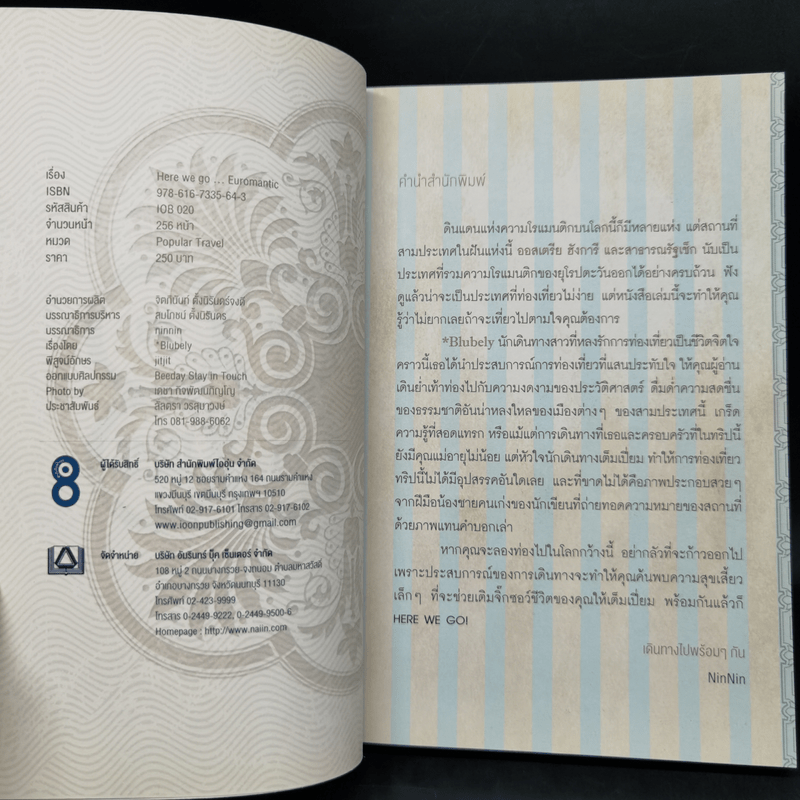 เรื่อง Here we go ... Euromantic
ISBN 978-616-7335-64-3
รหัสสินค้า IOB 020
จำนวนหน้า 256 หน้า
หมวด Popular Travel
ราคา 250 บาท
อำนวยการผลิต จิตภินันท์ ตั้งนิรันดร์จงดี
บรรณาธิการบริหาร สมโภชน์ ตั้งนิรันดร
บรรณาธิการ ninnin
เรื่องโดย *Blubely
พิสูจน์อักษร
ออกแบบศิลปกรรม Beeday Stay in Touch
Photo by เดชา กิจพัฒนภิญโญ
ประชาสัมพันธ์ ลีลตรา วรสุมาวงษ์
โทร 081-988-6062
ผู้ได้รับสิทธิ์ บริษัท สำนักพิมพ์ไออุ่น จำกัด
520 หมู่ 12 ซอยรามคำแหง 164 ถนนรามคำแหง
แขวงมีนบุรี เขตมีนบุรี กรุงเทพฯ 10510
โทรศัพท์ 02-917-6101 โทรสาร 02-917-6102
www.ioonpublishing@gmail.com
จัดจำหน่าย บริษัท อัมรินทร์ บุ๊ค เซ็นเตอร์ จำกัด
108 หมู่ 2 ถนนบางกรวย-จงถนอม ตำบลมหาสวัสดิ์
อำเภอบางกรวย จังหวัดนนทบุรี 11130
โทรศัพท์ 02-423-9999
โทรสาร 0-2449-9222, 0-2449-9500-6
Homepage : http://www.naiin.com
คำนำสำนักพิมพ์
ดินแดนแห่งความโรแมนติกบนโลกนี้ก็มีหลายแห่ง แต่สถานที่
สามประเทศในฝันแห่งนี้ ออสเตรีย ฮังการี และสาธารณรัฐเช็ก นับเป็น
ประเทศที่รวมความโรแมนติกของยุโรปตะวันออกได้อย่างครบถ้วน ฟัง
ดูแล้วน่าจะเป็นประเทศที่ท่องเที่ยวไม่ง่าย แต่หนังสือเล่มนี้จะทำให้คุณ
รู้ว่าไม่ยากเลยถ้าจะเที่ยวไปตามใจคุณต้องการ
*Blubely นักเดินทางสาวที่หลงรักการท่องเที่ยวเป็นชีวิตจิตใจ
คราวนี้เธอได้นำประสบการณ์การท่องเที่ยวที่แสนประทับใจ ให้คุณผู้อ่าน
เดินย่ำเท้าท่องไปกับความงดงามของประวัติศาสตร์ ดื่มด่ำความสดชื่น
ของธรรมชาติอันน่าหลงใหลของเมืองต่างๆ ของสามประเทศนี้ เกร็ด
ความรู้ที่สอดแทรก หรือแม้แต่การเดินทางที่เธอและครอบครัวที่ในทริปนี้
ยังมีคุณแม่อายุไม่น้อย แต่หัวใจนักเดินทางเต็มเปี่ยม ทำให้การท่องเที่ยว
ทริปนี้ไม่ได้มีอุปสรรคอันใดเลย และที่ขาดไม่ได้คือภาพประกอบสวยๆ
จากฝีมือน้องชายคนเก่งของนักเขียนที่ถ่ายทอดความหมายของสถานที่
ด้วยภาพแทนคำบอกเล่า
หากคุณจะลองท่องไปในโลกกว้างนี้ อย่ากลัวที่จะก้าวออกไป
เพราะประสบการณ์ของการเดินทางจะทำให้คุณค้นพบความสุขเสี้ยว
เล็กๆ ที่จะช่วยเติมจิ๊กซอว์ชีวิตของคุณให้เต็มเปี่ยม พร้อมกันแล้วก็
HERE WE GO!
เดินทางไปพร้อมๆ กัน
NinNin